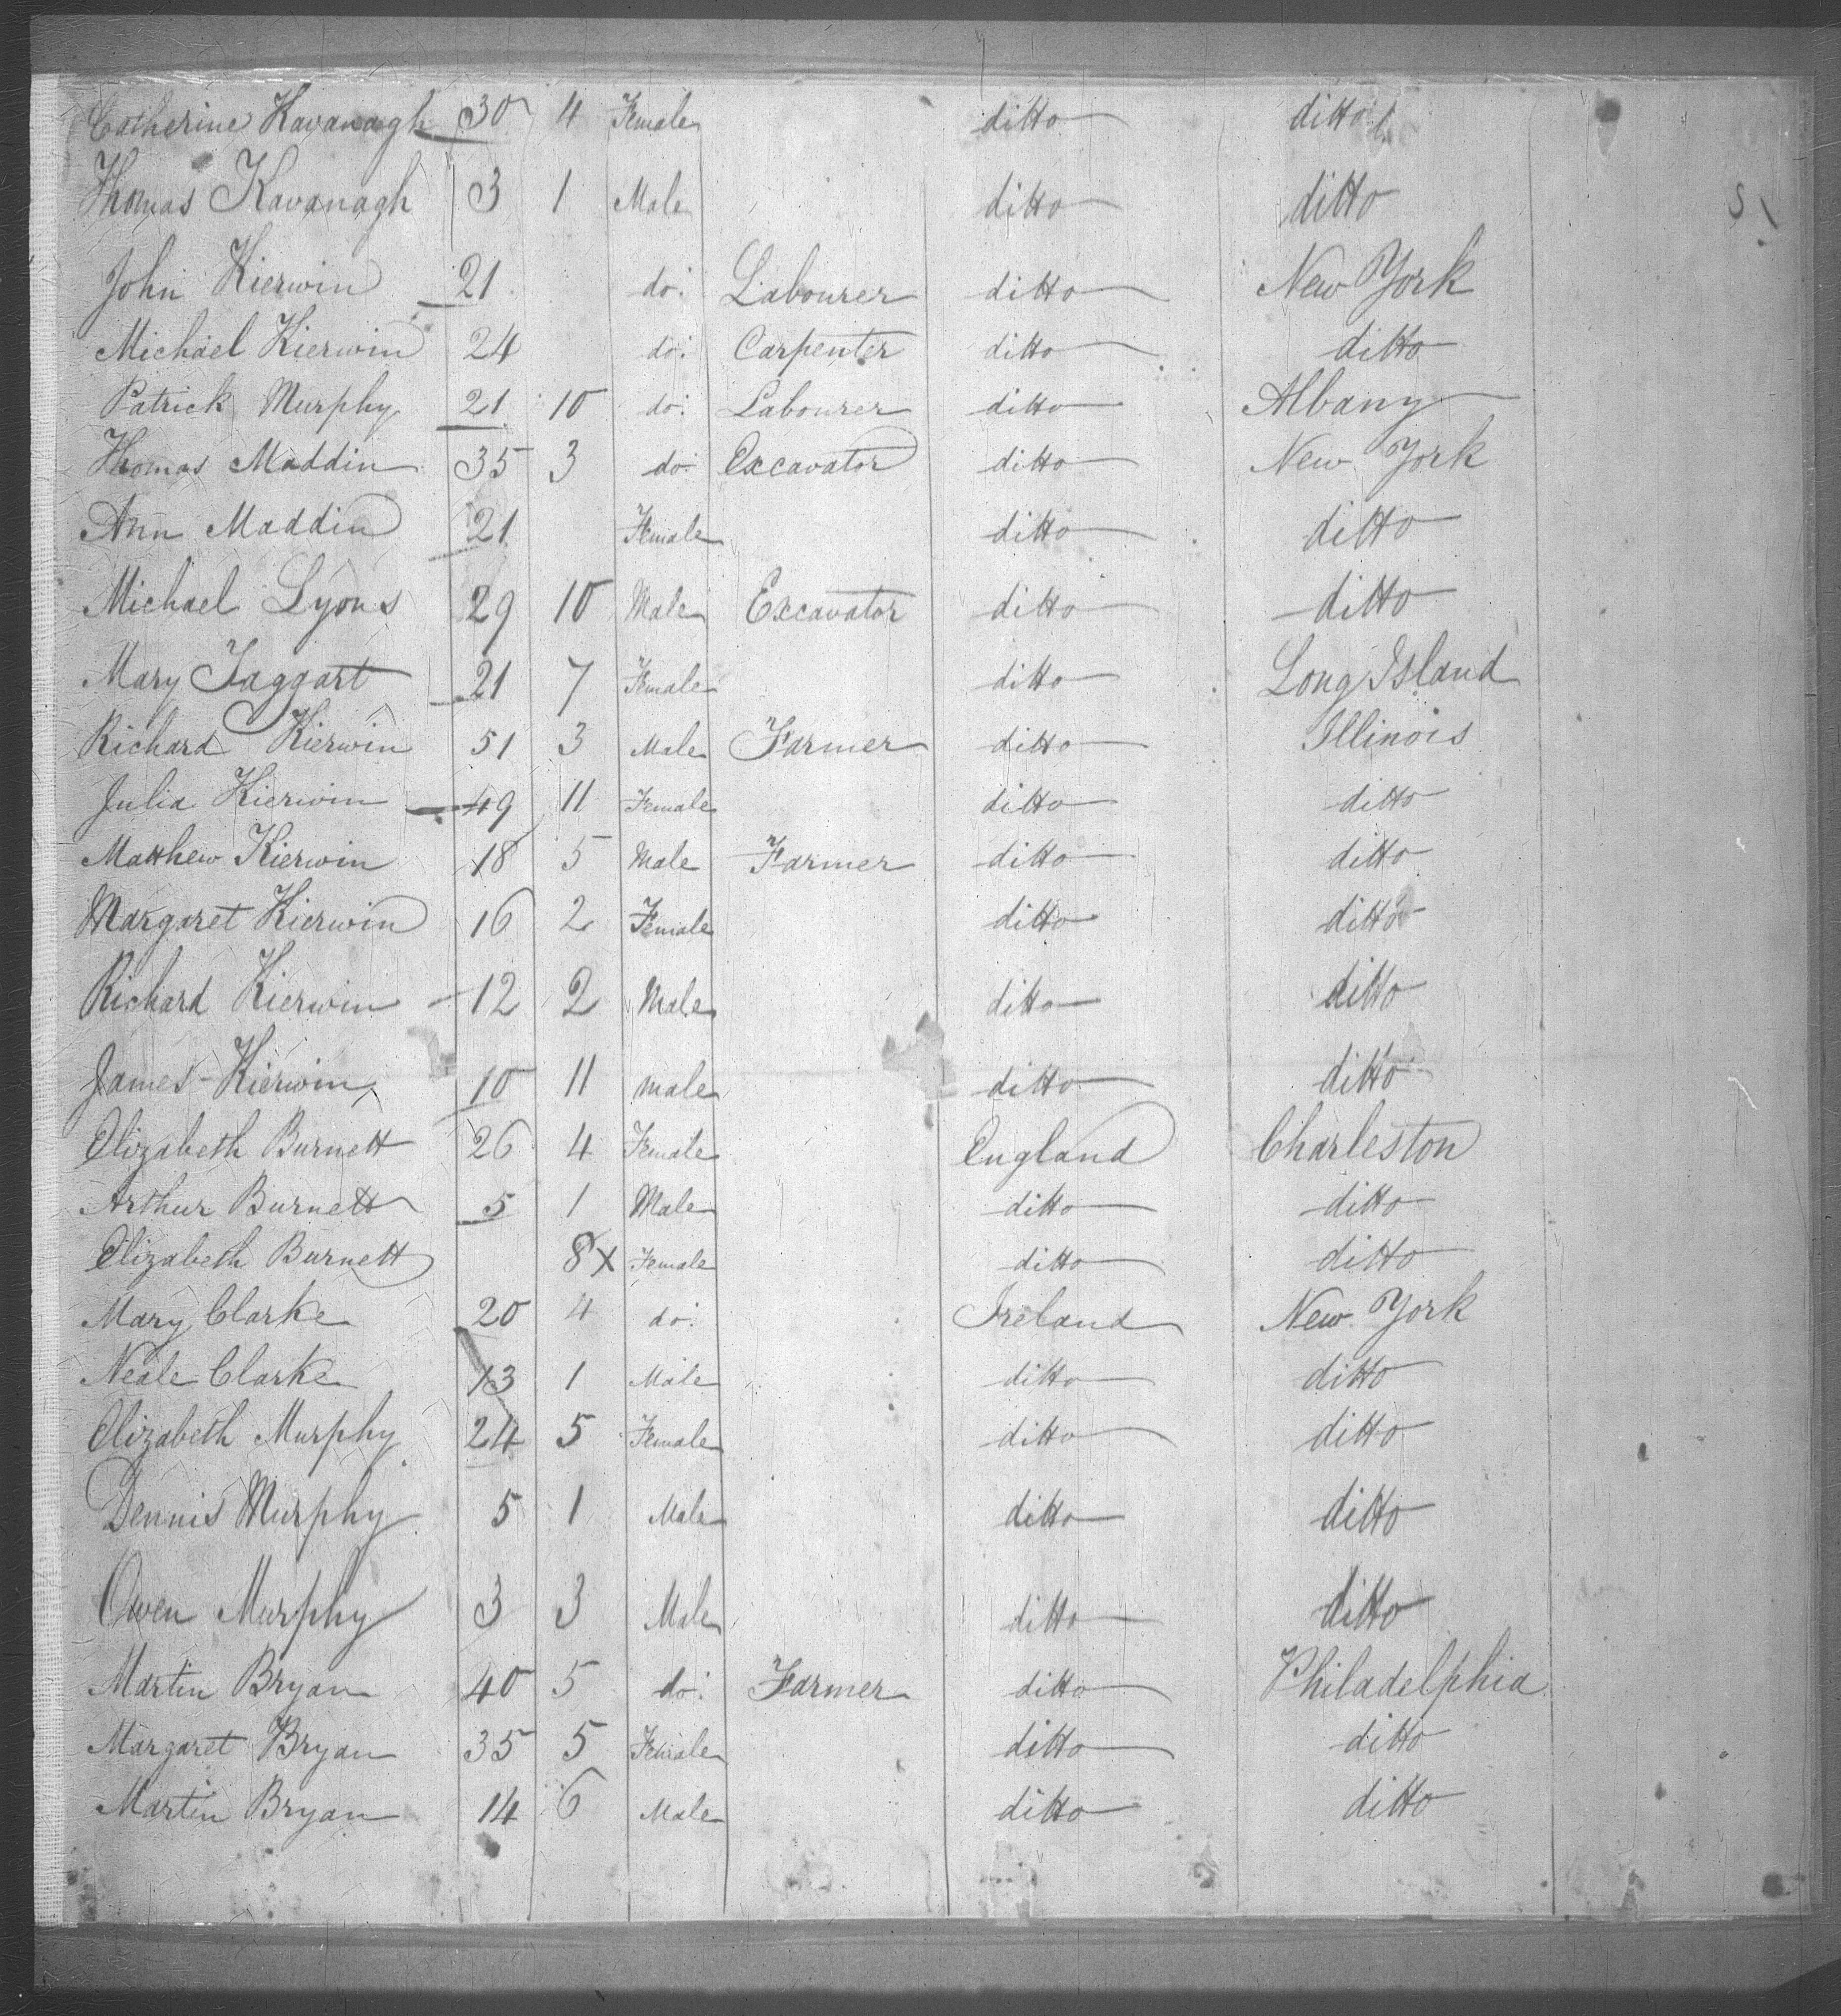 Catherine Kavanagh 30 4 Female ditto ditto
Thomas Kavanagh 3 1 Male ditto ditto
John Kierwin 21 do. Labourer ditto New York
Michael Kierwin 24 do. Carpenter ditto ditto
Patrick Murphy 21 10 do. Labourer ditto Albany
Thomas Maddin 35 3 do. Excavator ditto New York
Ann Maddin 21 Female ditto ditto
Michael Lyons 29 10 Male Excavator ditto ditto
Mary Taggart 21 7 Female ditto Long Island
Richard Kierwin 51 3 Male Farmer ditto Illinois
Julia Kierwin 49 11 Female ditto ditto
Matthew Kierwin 18 5 Male Farmer ditto ditto
Margaret Kierwin 16 2 Female ditto ditto
Richard Kierwin 12 2 Male ditto ditto
James Kierwin 10 11 male ditto ditto
Elizabeth Burnett 26 4 Female England Charleston
Arthur Burnett 5 1 Male ditto ditto
Elizabeth Burnett 8 x Female ditto ditto
Mary Clarke 20 4 do. Ireland New York
Neale Clarke 13 1 Male ditto ditto
Elizabeth Murphy 24 5 Female ditto ditto
Dennis Murphy 5 1 Male ditto ditto
Owen Murphy 3 3 Male ditto ditto
Martin Bryan 40 5 do. Farmer ditto Philadelphia
Margaret Bryan 35 5 Female ditto ditto
Martin Bryan 14 6 Male ditto ditto